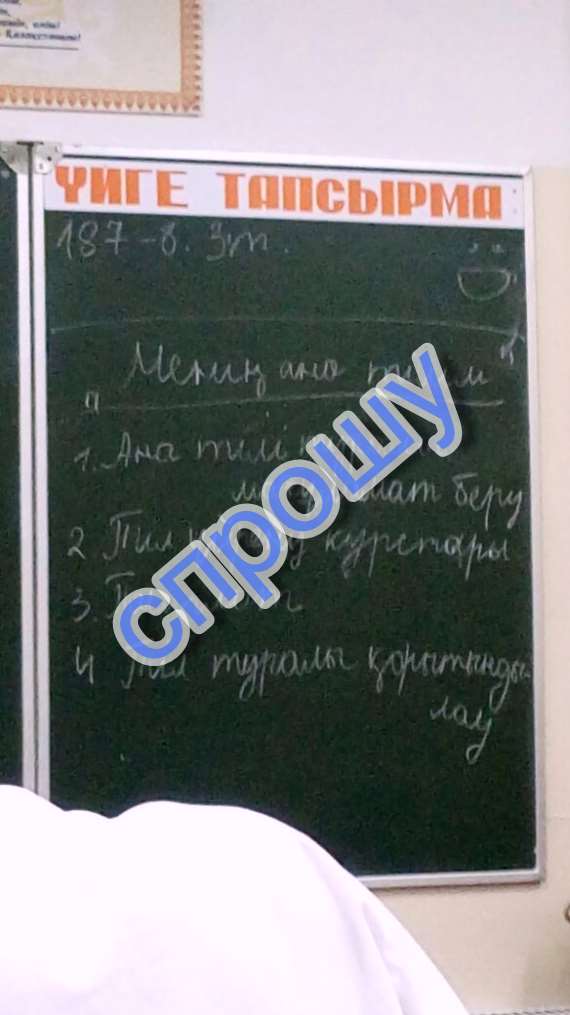 Қазақстаным!
ҮЙГЕ ТАПСЫРМА
187-б. 3т.
Менің ана тілім
1. Ана тілі
мағлұмат беру
2 Тіл үйрену курстары
3.
4 Тіл туралы қорытынды-
лау
спрошу